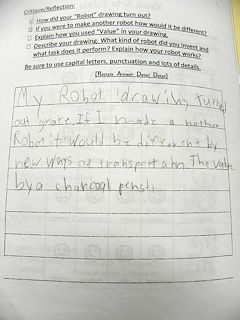 Critique/Reflection:
How did your "Robot" drawing turn out?
If you were to make another robot how would it be different?
Explain how you used "Value" in your drawing.
Describe your drawing. What kind of robot did you invent and
what task does it perform? Explain how your robot works?
Be sure to use capital letters, punctuation and lots of details.
(Restate Answer Detail Detail)
My Robot drawing turned
out grate. If I made a nother
Robot it would be different by
new ways of transportation. The value
by a charcoal pensil.